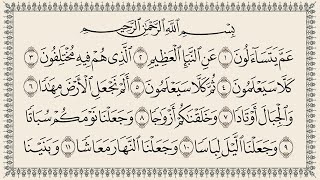 بِسْمِ اللَّهِ الرَّحْمَٰنِ الرَّحِيمِ
عَمَّ يَتَسَاءَلُونَ ١ عَنِ النَّبَإِ الْعَظِيمِ ٢ الَّذِي هُمْ فِيهِ مُخْتَلِفُونَ ٣
كَلَّا سَيَعْلَمُونَ ٤ ثُمَّ كَلَّا سَيَعْلَمُونَ ٥ أَلَمْ نَجْعَلِ الْأَرْضَ مِهَٰدًا ٦
وَالْجِبَالَ أَوْتَادًا ٧ وَخَلَقْنَٰكُمْ أَزْوَٰجًا ٨ وَجَعَلْنَا نَوْمَكُمْ سُبَاتًا
٩ وَجَعَلْنَا الَّيْلَ لِبَاسًا ١٠ وَجَعَلْنَا النَّهَارَ مَعَاشًا ١١ وَبَنَيْنَا